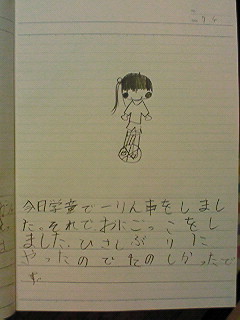 今日学童で一りん車をしまし
た。それでおにごっこをし
ました。ひさしぶりに
やったのでたのしかったで
す。